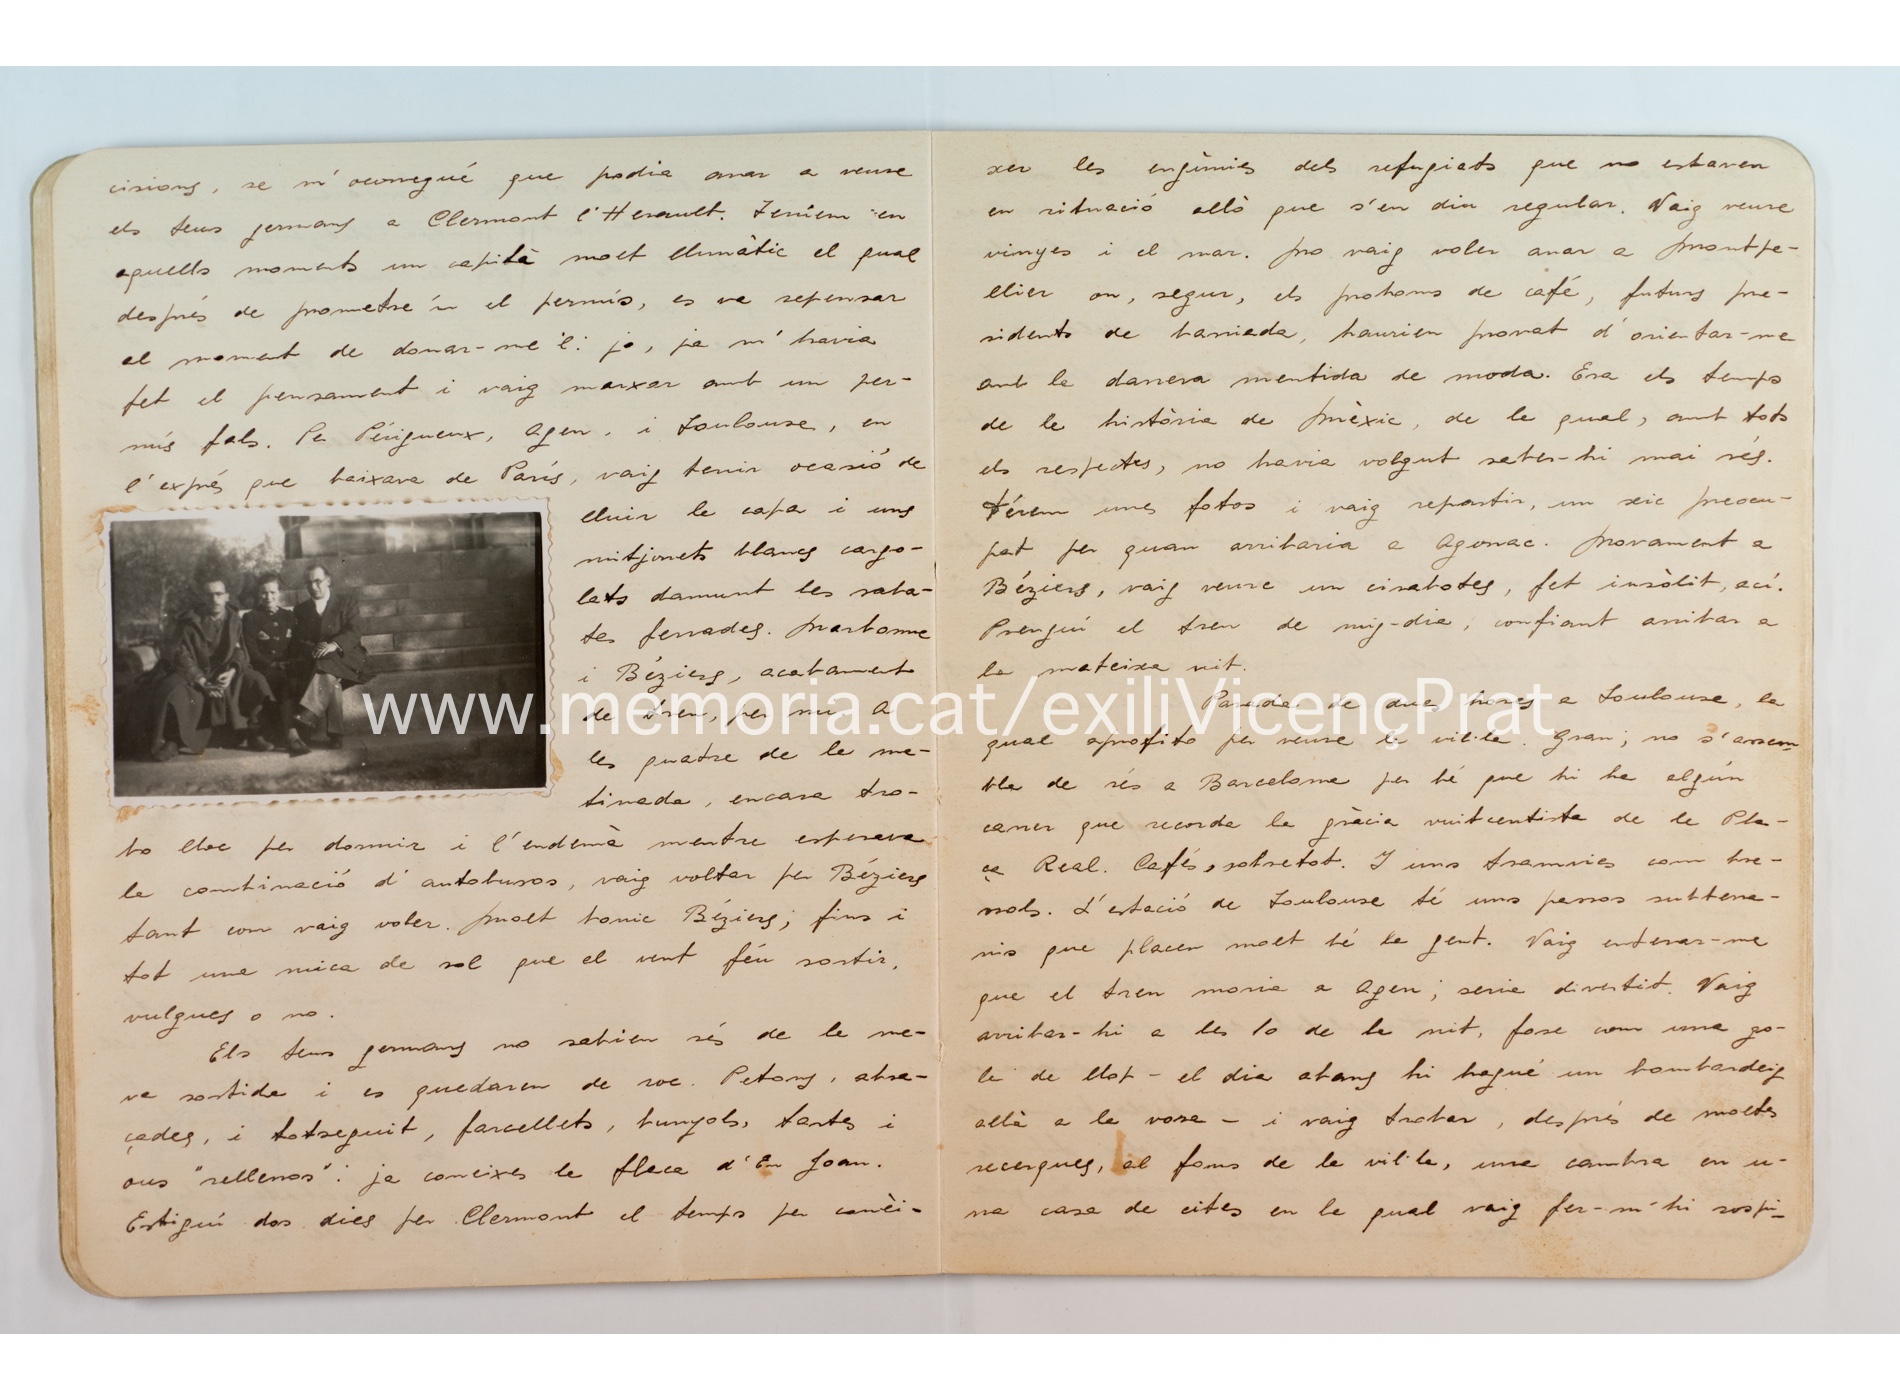 cisions, se m'ocorregué que podia anar a veure
els teus germans a Clermont l'Herault. Teníem en
aquells moments un capità molt llunàtic el qual
després de prometre'm el permís, es va repensar
al moment de donar-me'l: jo, ja m'havia
fet el pensament i vaig marxar amb un per-
mís fals. Per Périgueux, Agen, i Toulouse, en
l'exprés que baixava de París, vaig tenir ocasió de
lluir la capa i uns
mitjonets blancs cargo-
lats damunt les saba-
tes ferrades. Narbonne
i Béziers, acabament
de tren, per mi. A
les quatre de la ma-
tinada, encara tro-
bo lloc per dormir i l'endemà mentre esperava
la combinació d'autobusos, vaig voltar per Béziers
tant com vaig voler. Molt bonic Béziers; fins i
tot una mica de sol que el vent féu sortir,
vulgues o no.
Els teus germans no sabien rés de la me-
va sortida i es quedaren de roc. Petons, abra-
çades, i totseguit, farcellets, bunyols, tartes i
ous "rellenos": ja coneixes la flaca d'En Joan.
Estiguí dos dies per Clermont el temps per conèi-
xer les engúnies dels refugiats que no estaven
en situació allò que s'en diu regular. Vaig veure
vinyes i el mar. No vaig voler anar a Montpe-
llier on, segur, els prohoms de café, futurs pre-
sidents de barriada, haurien provat d'orientar-me
amb la darrera mentida de moda. Era els temps
de la història de Mèxic, de la qual, amb tots
els respectes, no havia volgut saber-hi mai rés.
Férem unes fotos i vaig repartir, un xic preocu-
pat per quan arribaria a Agonac. Novament a
Béziers, vaig veure un cirabotes, fet insòlit, ací.
Prenguí el tren de mig-dia, confiant arribar a
la mateixa nit.
Parada de dues hores a Toulouse, la
qual aprofito per veure la vil·la. Gran; no s'assem-
bla de rés a Barcelona per bé que hi ha algún
carrer que recorda la gràcia vuitcentista de la Pla-
ça Real. Cafés, sobretot. I uns tramvies com bre-
ssols. L'estació de Toulouse té uns passos subterra-
nis que placen molt bé la gent. Vaig enterar-me
que el tren moria a Agen; seria divertit. Vaig
arribar-hi a les 10 de la nit, fosc com una go-
la de llop - el dia abans hi hagué un bombardeig
allà a la vora - i vaig trobar, després de moltes
recerques, al fons de la vil·la, una cambra en u-
na casa de cites en la qual vaig fer-m'hi sospi-
www.memoria.cat/exiliVicençPrat